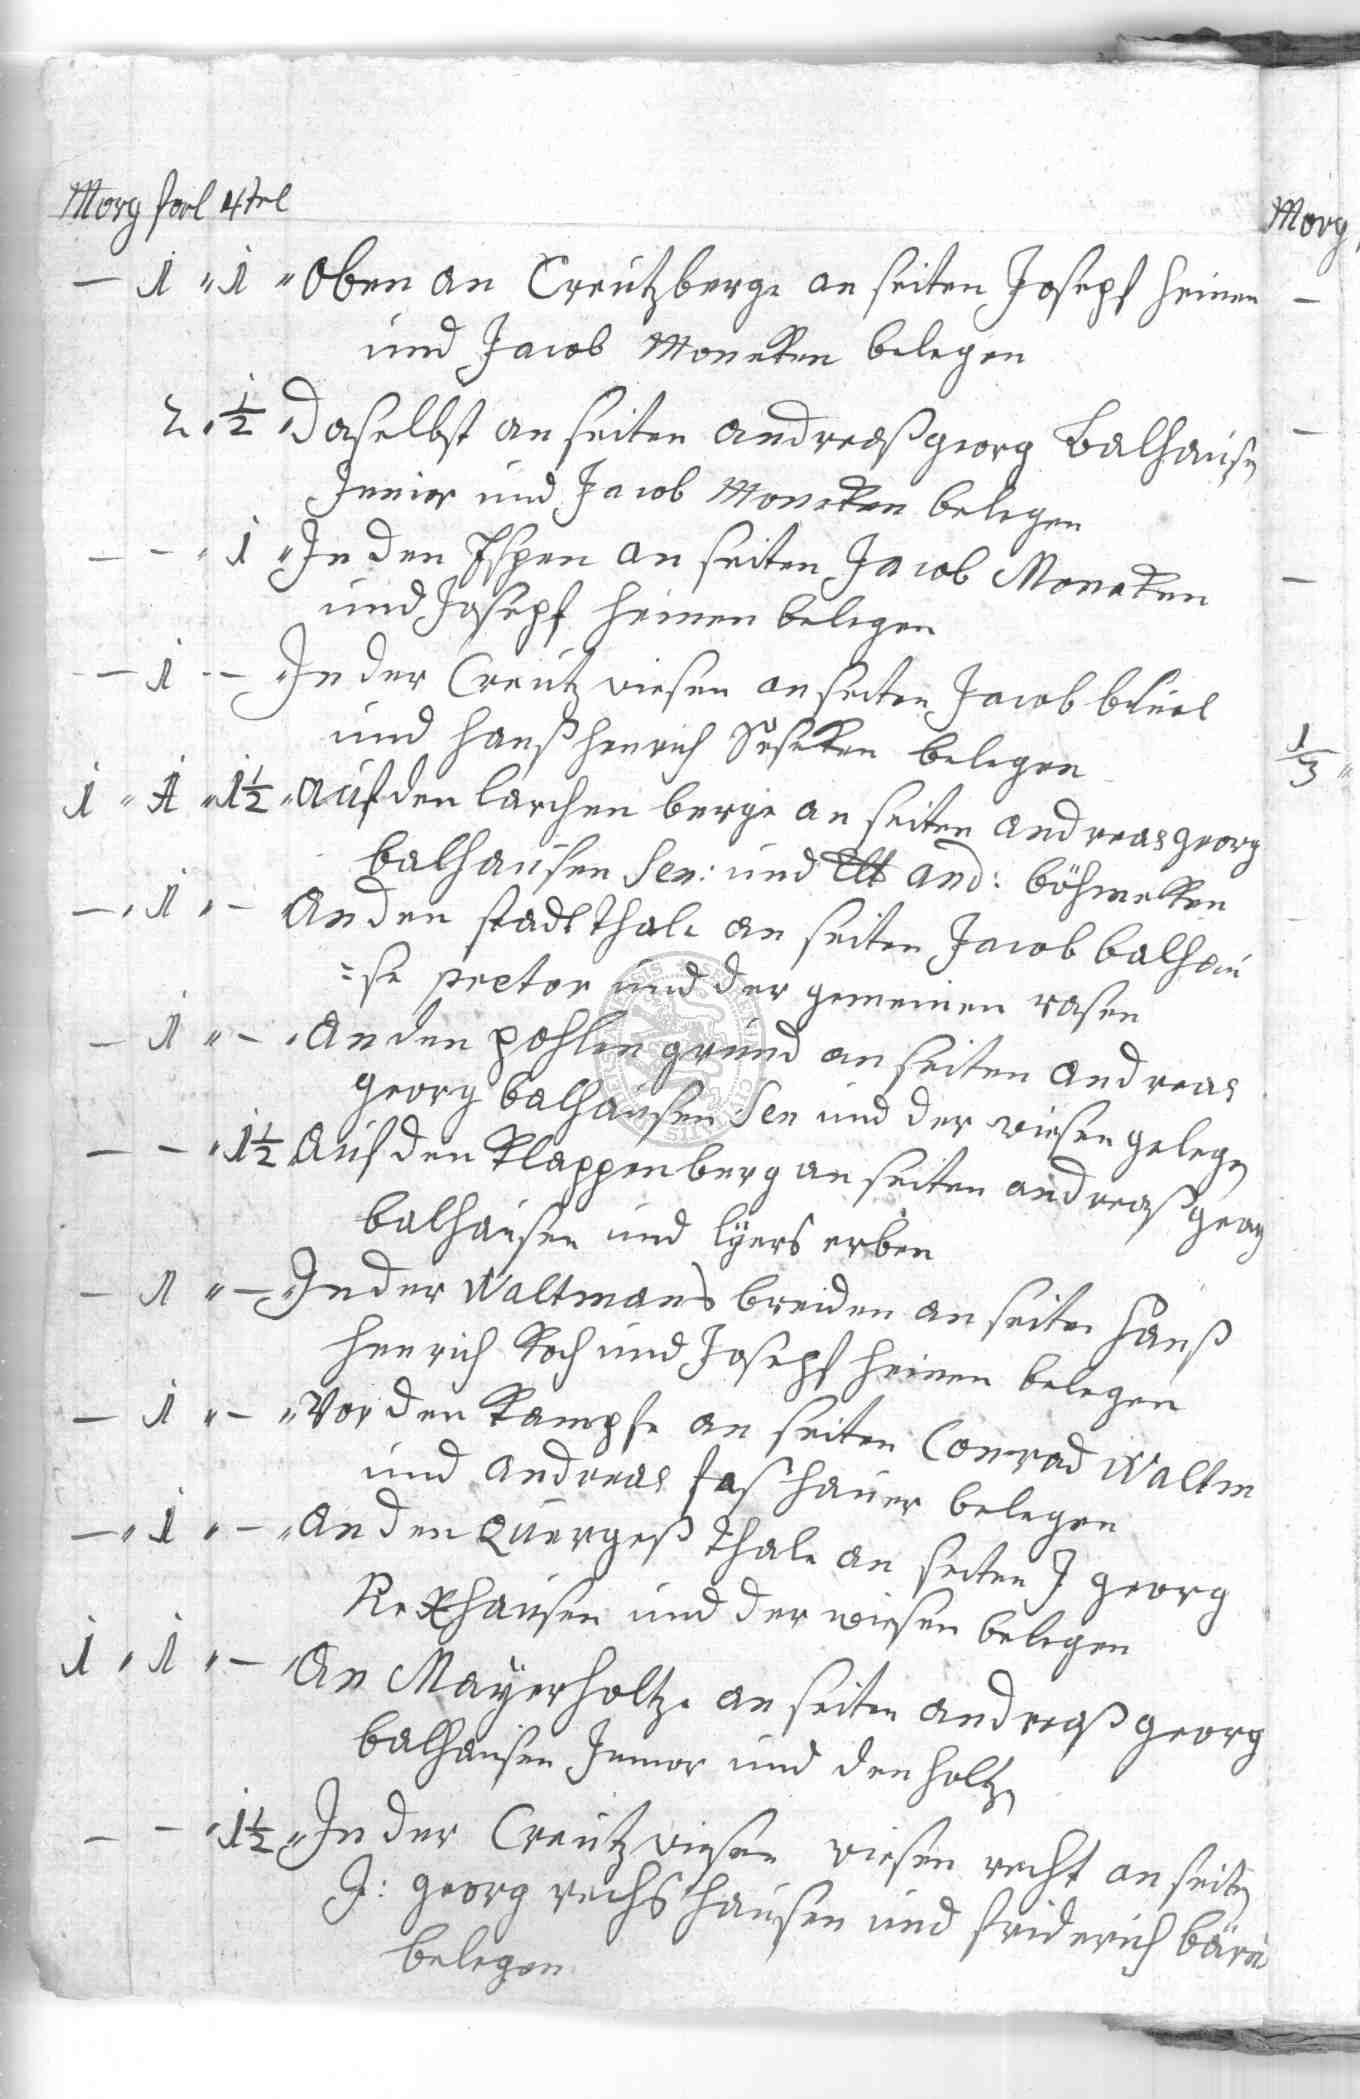 Morg forl 4tel
– 1 " 1 " Oben an Creutzberge an seiten Joseph heinen
und Jacob Moneken belegen
2 " ½ " Daselbst an seiten andreaß georg Balhausen
Junior und Jacob Moneken belegen
– – " 1 " In den Espen an seiten Jacob Moneken
und Joseph heinen belegen
– 1 – – In der Creutz wiesen an seiten Jacob
und hanß henrich belegen
1 " 1 " 1½ " auf den larchen berge an seiten andreas georg
balhausen Sen: und and: böhmeken
– " 1 " – an den stadt thale an seiten Jacob balhau
=se pretor und der gemeinen rasen
– 1 " – " an den pohlen grund an seiten andreas
georg balhausen Sen und der wiesen gelegen
– – " 1½ auf den Klappenberg an seiten andreaß georg
balhausen und lÿers erben
– 1 " – " In der Waltmans breiden an seiten hanß
henrich Koch und Joseph heinen belegen
– 1 " – " Vor den Kampfe an seiten Conrad Waltm
und andreas faßhauer belegen
– " 1 " – " an den quergeß thale an seiten J georg
Rexhausen und der wiesen belegen
1 " 1 " – " an Mayerholtze an seiten andreaß georg
balhausen Junior und den holtze
– – " 1½ " In der Creutzwiesen wiesen recht an seiten
J: georg rechshausen und friderich
belegen
Morg
–
–
–
1/3 "